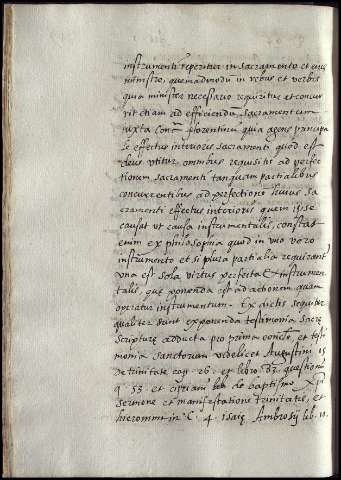 instrumenti reperitur in sacramento et eius
ministro, quemadmodũ in rebus et verbis
quia minister necessario requiritur et concur
rit etiam ad efficiendũ sacramentum
iuxta Conc̃ florentinũ quia agens principa
le effectus interioris sacramenti quod est
deus utitur omnibus requisitis ad perfec
tionem sacramenti tanquam partialibus
concurrentibus ad perfectione huius sa
cramenti effectus interioris quem ipse
causat ut causa instrumentalis, constat
enim ex philosophia quod in uno vero
instrumento et si plura partialia requirant
una est sola virtus perfecta instrumen
talis, que ponenda est ad actionem quam
operatur instrumentum. Ex dictis sequitur
qualiter sunt exponenda testimonia sacre
scripture adducta pro prima concl. et testi
monia sanctorum videlicet Augustini 15
de trinitate cap. 26. et libro 83. questionũ
q. 53 et cipriani de baptismo Xp̃i
sermone et manifestatione trinitatis, et
hieronimi in C. 4. isaię Ambrosij lib. 11.